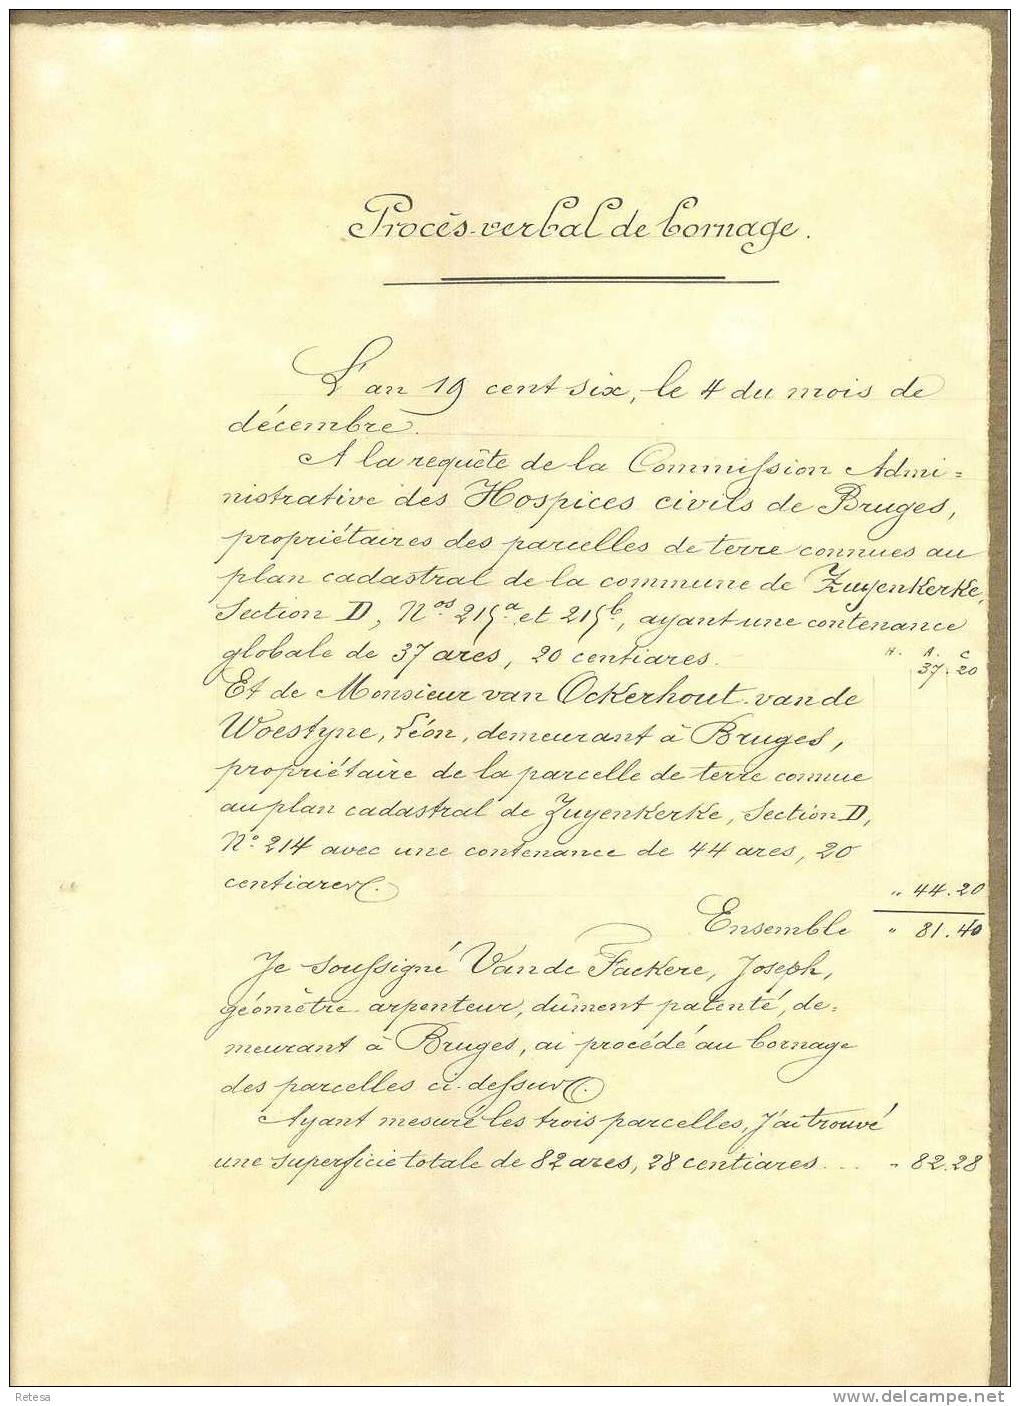 Procès-verbal de bornage.
L'an 19 cent six, le 4 du mois de
décembre.
A la requête de la Commission Admi=
nistrative des Hospices civils de Bruges,
propriétaires des parcelles de terre connues au
plan cadastral de la commune de Zuyenkerke,
Section D, Nos 215a et 215b, ayant une contenance
globale de 37 ares, 20 centiares.
H. A. C
37.20
Et de Monsieur van Ockerhout-vande
Woestyne, Léon, demeurant à Bruges,
propriétaire de la parcelle de terre connue
au plan cadastral de Zuyenkerke, Section D,
No. 214 avec une contenance de 44 ares, 20
centiares.
" 44.20
Ensemble " 81.40
Je soussigné Vande Fackere, Joseph,
géomètre-arpenteur, dûment patenté, de=
meurant à Bruges, ai procédé au bornage
des parcelles ci-dessus.
Ayant mesuré les trois parcelles, j'ai trouvé
une superficie totale de 82 ares, 28 centiares ... " 82.28
Retesa
delcampe.net